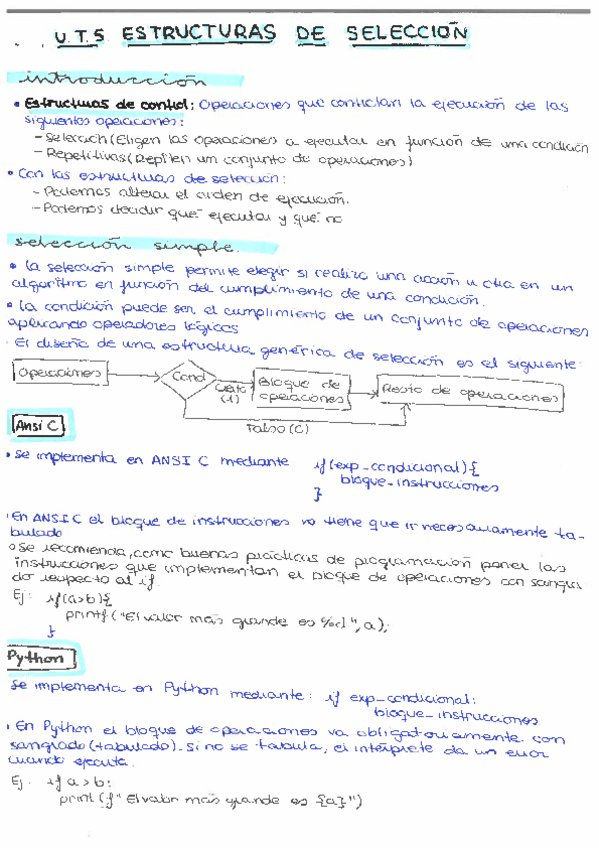 U.T.5 ESTRUCTURAS DE SELECCIÓN
introducción
• Estructuras de control: Operaciones que controlan la ejecución de las
siguientes operaciones:
- Selección (Eligen las operaciones a ejecutar en función de una condición
- Repetitivas (Repiten un conjunto de operaciones)
• Con las estructuras de selección:
- Podemos alterar el orden de ejecución.
- Podemos decidir qué ejecutar y qué no
selección simple.
• La selección simple permite elegir si realizo una acción u otra en un
algoritmo en función del cumplimiento de una condición.
• La condición puede ser el cumplimiento de un conjunto de operaciones
aplicando operadores lógicos
· El diseño de una estructura genérica de selección es el siguiente:
Operaciones
Cond
Cierto
(1)
Bloque de
operaciones
Resto de operaciones
Falso (0)
Ansi C
• Se implementa en ANSI C mediante if(exp_condicional){
bloque_instrucciones
}
· En ANSI C el bloque de instrucciones no tiene que ir necesariamente ta-
bulado
o Se recomienda, como buenas prácticas de programación poner las
instrucciones que implementan el bloque de operaciones con sangra
do respecto al if.
Ej: if(a>b){
printf("El valor más grande es %d", a);
}
Python
Se implementa en Python mediante: if exp_condicional:
bloque_instrucciones
· En Python el bloque de operaciones va obligatoriamente con
sangrado (tabulado). Si no se tabula, el intérprete da un error
cuando ejecuta.
Ej: if a>b:
print (f"El valor más grande es {a}")